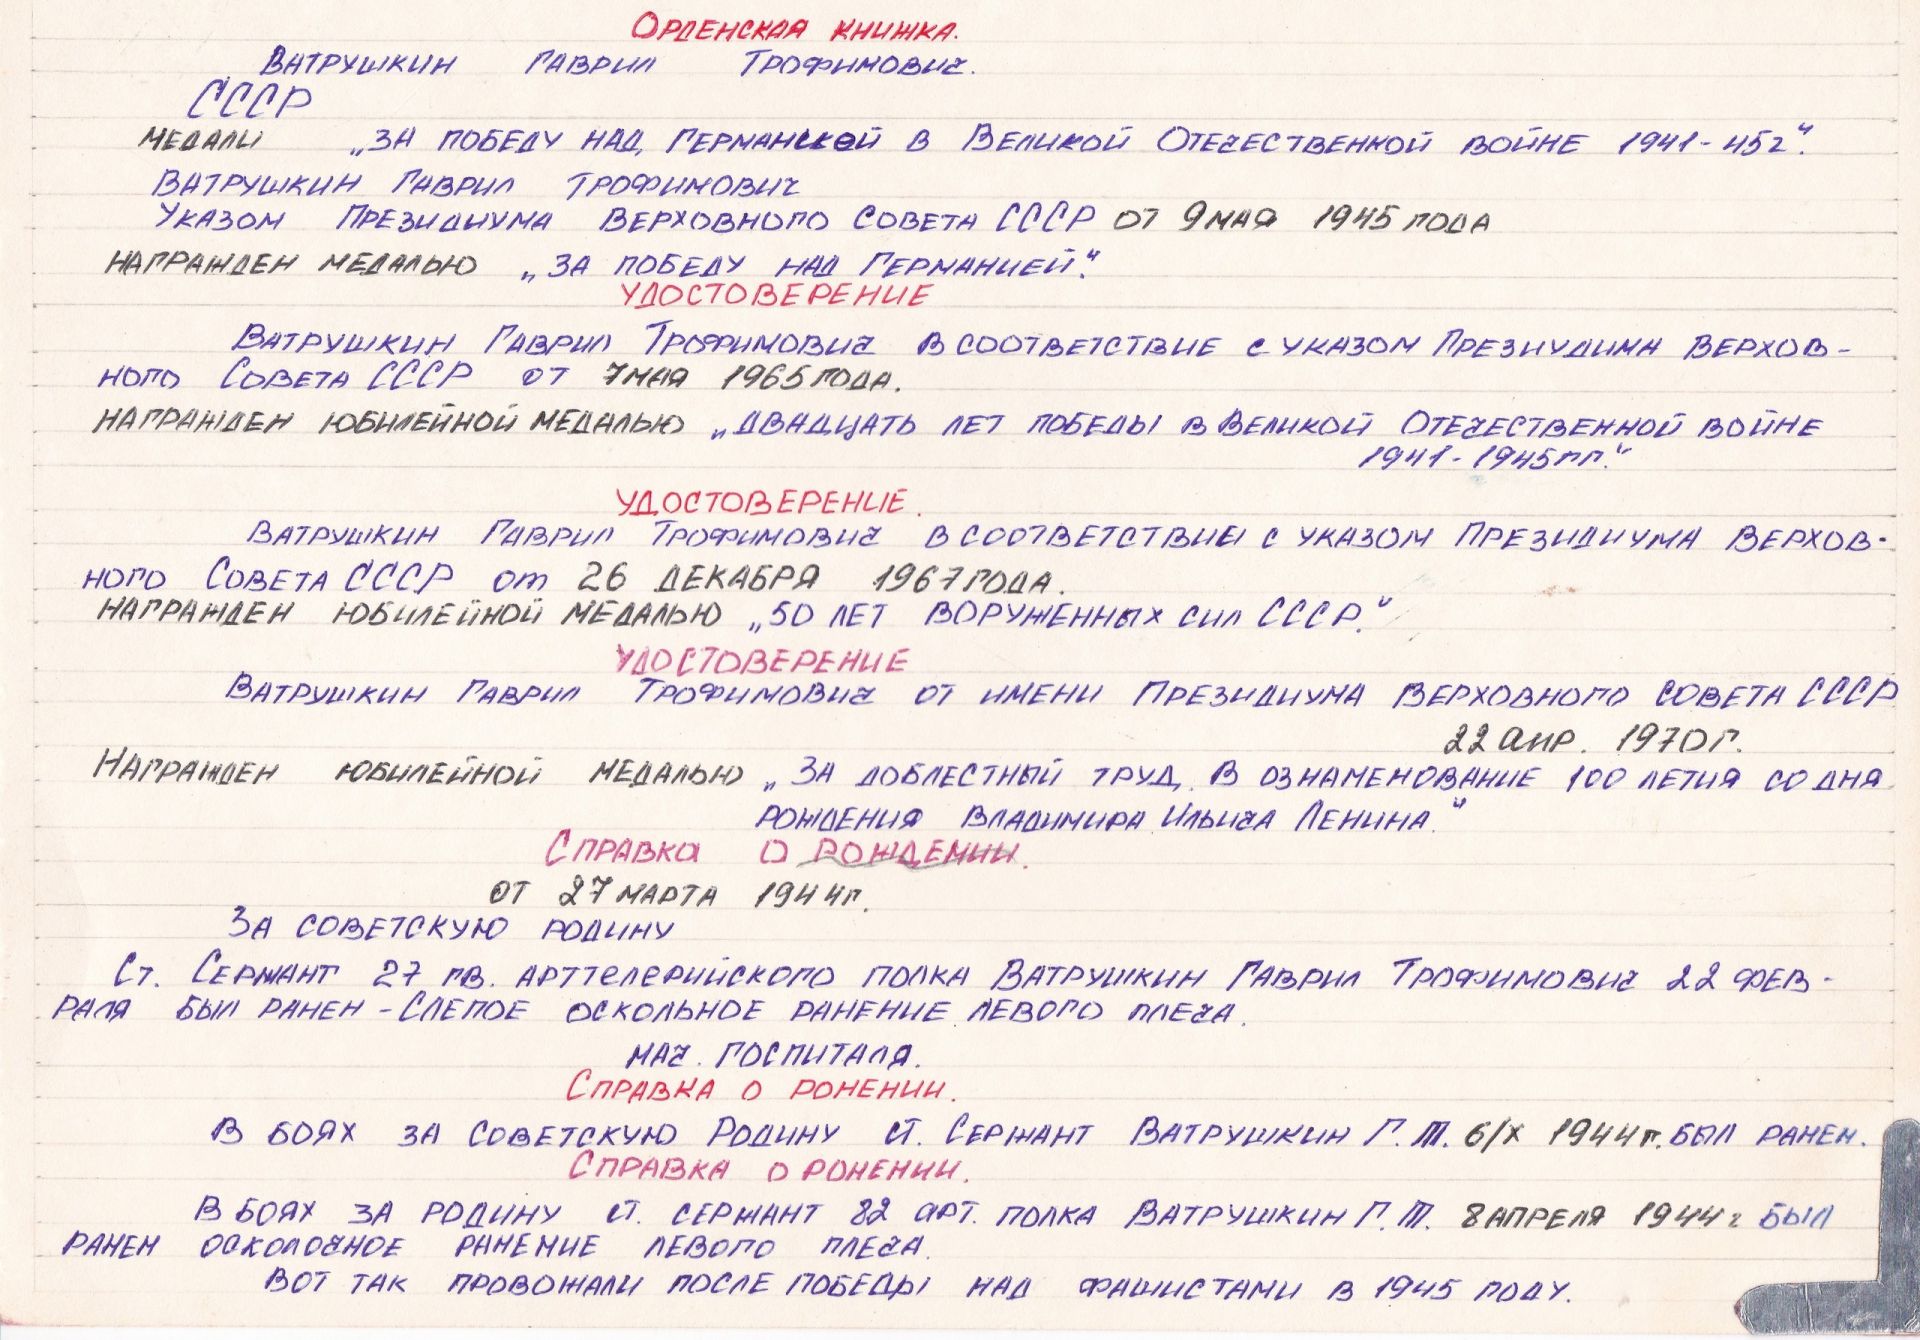 Орденская книжка.
Ватрушкин Гаврил Трофимович.
СССР
медали „За победу над Германской в Великой Отечественной войне 1941-45г."
Ватрушкин Гаврил Трофимович
Указом Президиума Верховного Совета СССР от 9 мая 1945 года
награжден медалью „За победу над Германией."
Удостоверение
Ватрушкин Гаврил Трофимович в соответствие с указом Презиудима Верхов-
ного Совета СССР от 7 мая 1965 года.
награжден юбилейной медалью „Двадцать лет победы в Великой Отечественной войне
1941-1945гг."
Удостоверение.
Ватрушкин Гаврил Трофимович в соответствии с указом Президиума Верхов-
ного Совета СССР от 26 декабря 1967 года.
награжден юбилейной медалью „50 лет воруженных сил СССР."
Удостоверение
Ватрушкин Гаврил Трофимович от имени Президиума Верховного Совета СССР
22 апр. 1970г.
Награжден юбилейной медалью „За доблестный труд. В ознаменование 100 летия со дня
рождения Владимира Ильича Ленина."
Справка о рождении.
от 27 марта 1944г.
За советскую родину
Ст. Сержант 27 гв. арттелерийского полка Ватрушкин Гаврил Трофимович 22 фев-
раля был ранен - Слепое оскольное ранение левого плеча.
нач. госпиталя.
Справка о ронении.
В боях за советскую Родину ст. Сержант Ватрушкин Г.Т. 6/X 1944г. был ранен.
Справка о ронении.
В боях за родину ст. сержант 82 арт. полка Ватрушкин Г.Т. 8 апреля 1944г был
ранен осколочное ранение левого плеча.
Вот так провожали после победы над фашистами в 1945 году.